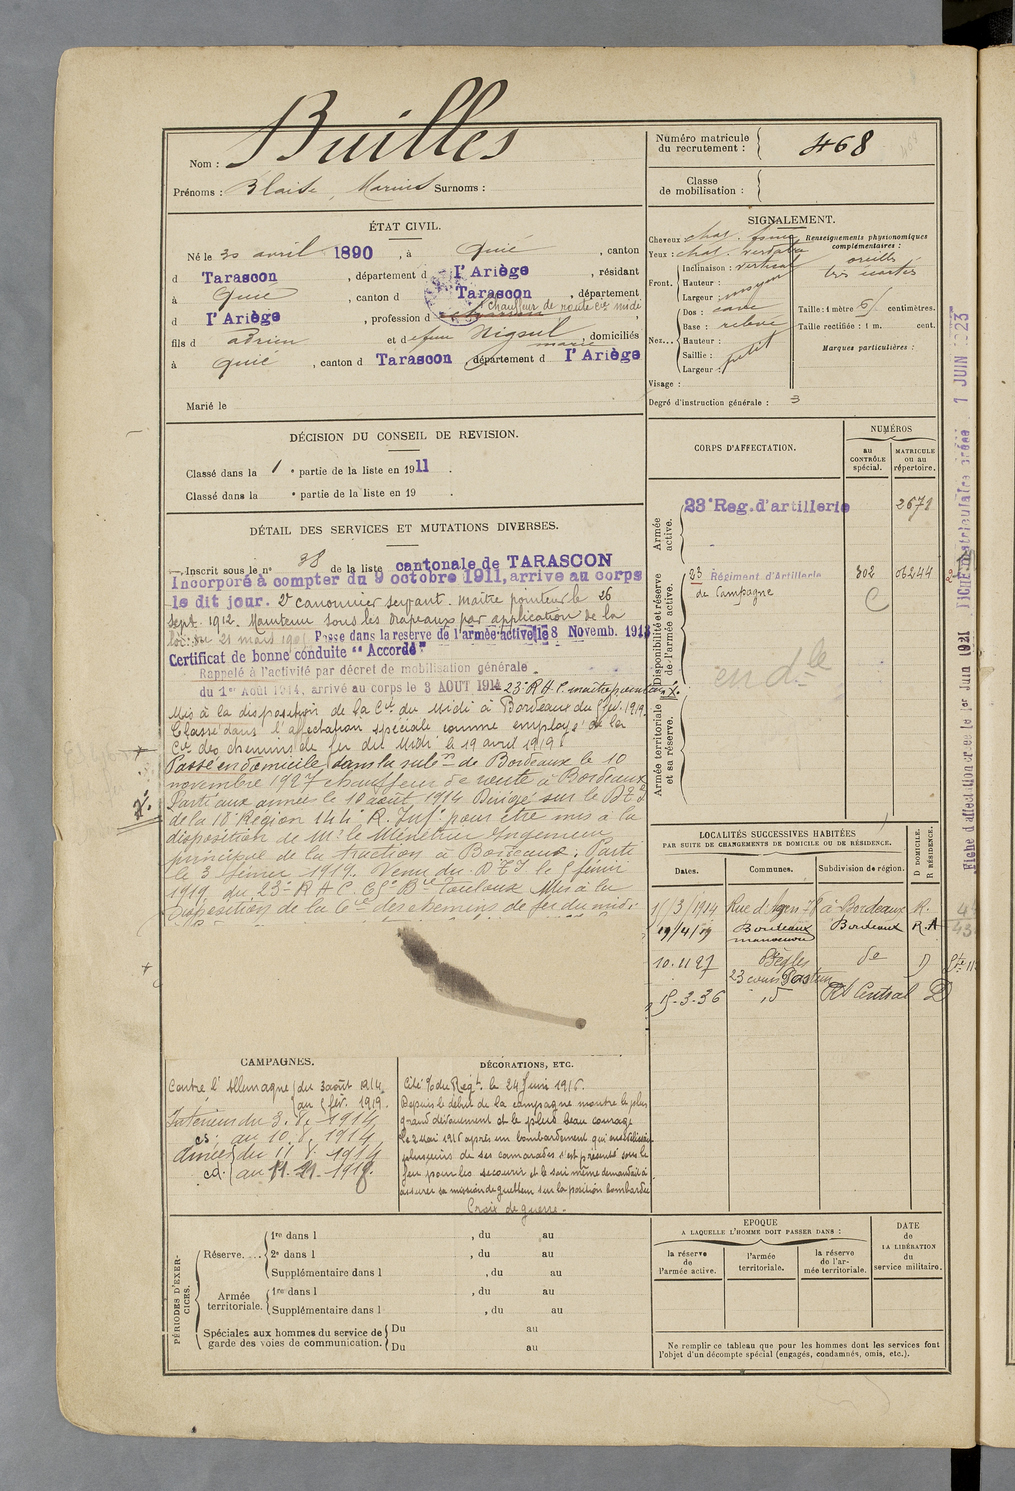 Nom : Builles
Prénoms : Blaise, Marius Surnoms :
Numéro matricule
du recrutement : 468
Classe
de mobilisation :
ÉTAT CIVIL.
Né le 30 avril 1890, à Quié, canton
d Tarascon, département d l'Ariège, résidant
à Quié, canton d Tarascon, département
d l'Ariège, profession d Chauffeur de route Cie midi
fils d Adrien et de feue Nigoul marie domiciliés
à Quié, canton d Tarascon département d l'Ariège
Marié le
SIGNALEMENT.
Cheveux chat.
Yeux : chat.
Front. Inclinaison : vertical
Hauteur :
Largeur : moyen
Nez... Dos : cave
Base : relevé
Hauteur :
Saillie : petit
Largeur :
Visage :
Degré d'instruction générale : 3
Renseignements physionomiques
complémentaires :
oreilles
très écartés
Taille : 1 mètre centimètres.
Taille rectifiée : 1 m. cent.
Marques particulières :
DÉCISION DU CONSEIL DE REVISION.
Classé dans la 1 e partie de la liste en 1911.
Classé dans la e partie de la liste en 19 .
DÉTAIL DES SERVICES ET MUTATIONS DIVERSES.
Inscrit sous le n° 38 de la liste cantonale de TARASCON
Incorporé à compter du 9 octobre 1911, arrivé au corps
le dit jour. 2e canonnier servant. Maître pointeur le 26
sept. 1912. Maintenu sous les drapeaux par application de la
loi du 21 mars 1905 Passe dans la réserve de l'armée active le 8 Novemb. 1913
Certificat de bonne conduite "Accordé"
Rappelé à l'activité par décret de mobilisation générale
du 1er Août 1914, arrivé au corps le 3 AOUT 1914 23e R.A.C. maître pointeur
Mis à la disposition de la Cie du Midi à Bordeaux du 5 fév. 1919.
Classé dans l'affectation spéciale comme employé de la
Cie des chemins de fer du Midi le 19 avril 1919
Passé en domicile dans la subon de Bordeaux le 10
novembre 1927 chauffeur de route à Bordeaux
Parti aux armées le 10 août 1914 Dirigé sur le D.T.I.
de la 18e Région 144e R. Inf. pour être mis à la
disposition de Mr le Ménetrier Ingénieur
principal de la traction à Bordeaux. Parti
le 3 février 1919. Venu du D.T.I. le 5 février
1919 du 23e R.A.C. Toulouse Mis à la
disposition de la Cie des chemins de fer du midi
CORPS D'AFFECTATION.
NUMÉROS
au
CONTRÔLE
spécial.
MATRICULE
ou au
répertoire.
Armée
active.
23e Reg. d'artillerie 2671
Disponibilité et réserve
de l'armée active.
23 Régiment d'Artillerie 302 06244
de Campagne C
en dle
Armée territoriale
et sa réserve.
LOCALITÉS SUCCESSIVES HABITÉES
PAR SUITE DE CHANGEMENTS DE DOMICILE OU DE RÉSIDENCE.
Dates. Communes. Subdivision de région. D DOMICILE. R RÉSIDENCE.
15/3/1914 Rue d'Agen 78 à Bordeaux R.
19/4/19 Bordeaux Bordeaux R.A
10.11 27 Bègles de D
23 cours Pasteur
15-3-36 Rt Central D
CAMPAGNES.
Contre l'Allemagne du 3 août 1914
au 5 fév. 1919.
Intérieur du 3.8.1914
cs. au 10.8.1914
Armées du 11.8.1914
cd. au 11.11.1918
DÉCORATIONS, ETC.
Cité o/o du Regt. le 24 Juin 1916.
Depuis le début de la campagne montre le plus
grand dévouement et le plus beau courage
Le 2 Mai 1916 après un bombardement qui ensevelissait
plusieurs de ses camarades s'est précipité sous le
feu pour les secourir et le soir même demandait à
assurer sa mission de guetteur sur la position bombardée
Croix de guerre.
PÉRIODES D'EXERCICES.
Réserve.... 1re dans l , du au
2e dans l , du au
Supplémentaire dans l , du au
Armée
territoriale. 1re dans l , du au
Supplémentaire dans l , du au
Spéciales aux hommes du service de
garde des voies de communication. Du au
Du au
EPOQUE
A LAQUELLE L'HOMME DOIT PASSER DANS :
la réserve
de
l'armée active.
l'armée
territoriale.
la réserve
de l'ar-
mée territoriale.
DATE
de
LA LIBÉRATION
du
service militaire.
Ne remplir ce tableau que pour les hommes dont les services font
l'objet d'un décompte spécial (engagés, condamnés, omis, etc.).
Fiche d'affectation créée le 1er Juin 1921
FICHE matriculaire créée 1 JUIN 1923